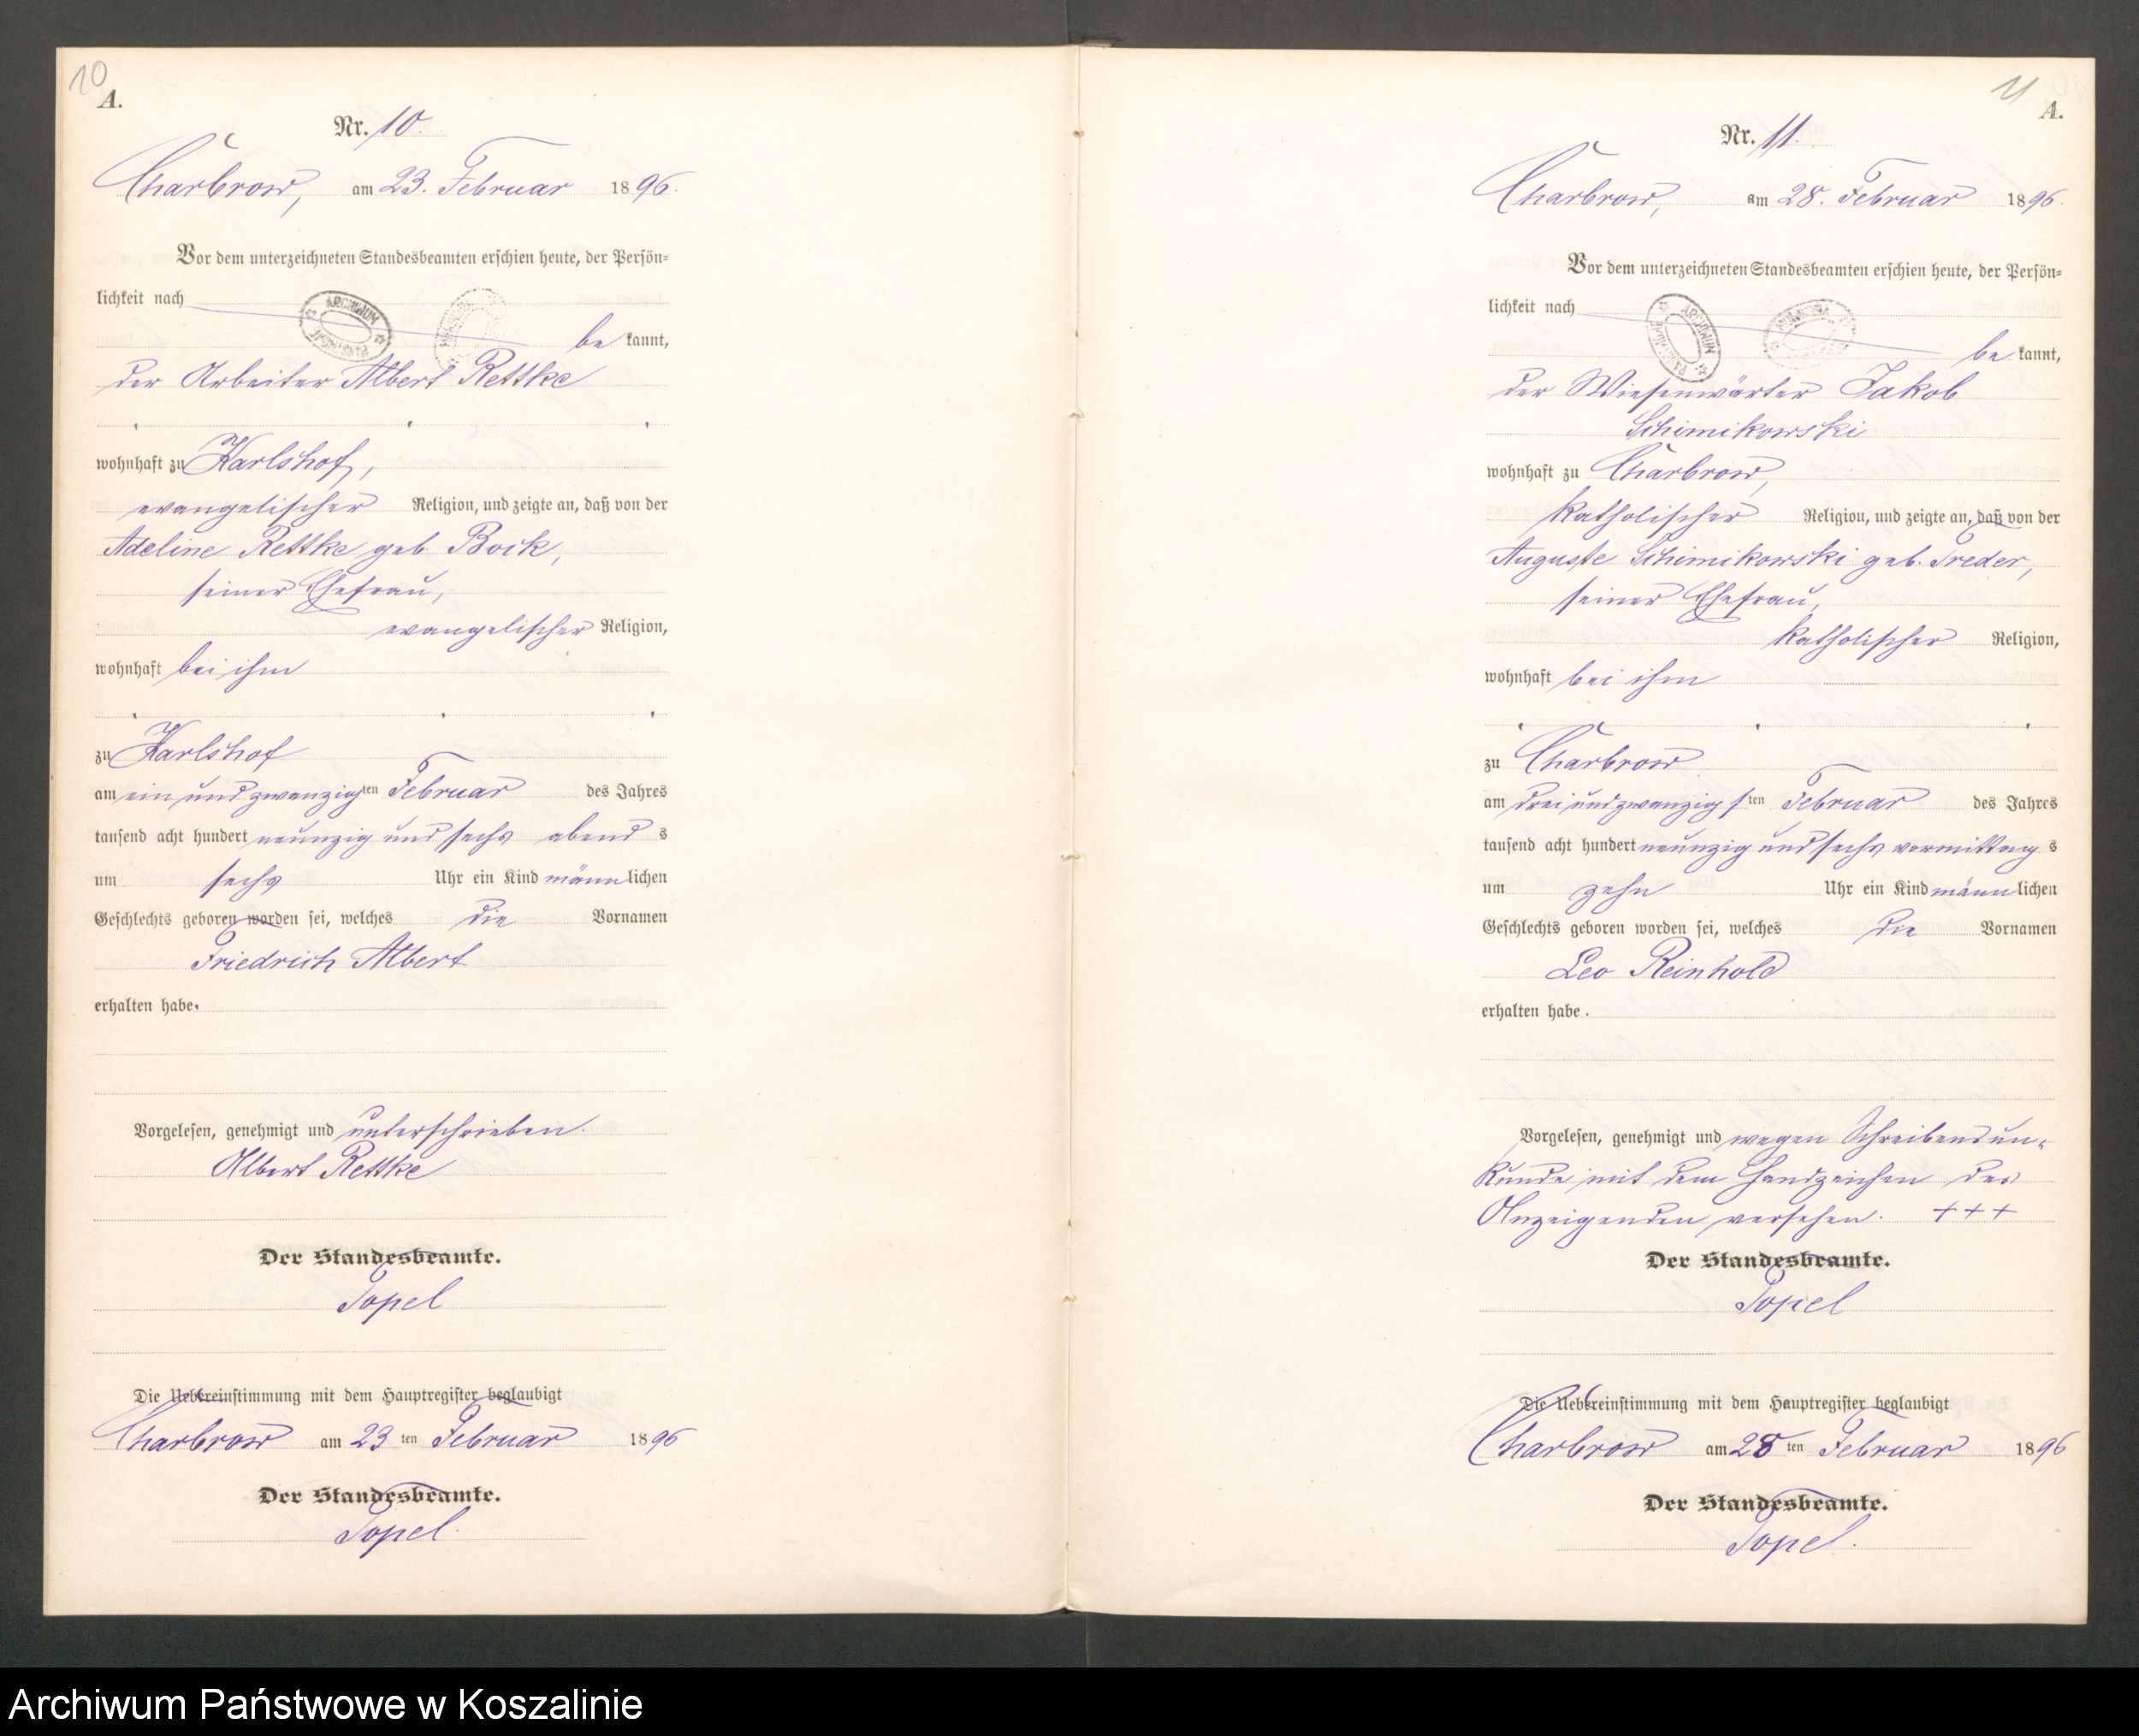 10
A.
Nr. 10.
Charbrow, am 23. Februar 1896.
Vor dem unterzeichneten Standesbeamten erschien heute, der Persön=
lichkeit nach
be kannt,
der Arbeiter Albert Rettke
wohnhaft zu Karlshof,
evangelischer Religion, und zeigte an, daß von der
Adeline Rettke geb. Bock,
seiner Ehefrau,
evangelischer Religion,
wohnhaft bei ihm
zu Karlshof
am ein und zwanzigsten Februar des Jahres
tausend acht hundert neunzig und sechs abend s
um sechs Uhr ein Kind männlichen
Geschlechts geboren worden sei, welches die Vornamen
Friedrich Albert
erhalten habe.
Vorgelesen, genehmigt und unterschrieben.
Albert Rettke
Der Standesbeamte.
Topel
Die Uebereinstimmung mit dem Hauptregister beglaubigt
Charbrow am 23 ten Februar 1896
Der Standesbeamte.
Topel.
11
A.
Nr. 11.
Charbrow, am 28. Februar 1896.
Vor dem unterzeichneten Standesbeamten erschien heute, der Persön=
lichkeit nach
ARCHIWUM
be kannt,
der Wiesenwärter Jakob
Schimikowski
wohnhaft zu Charbrow,
katholischer Religion, und zeigte an, daß von der
Auguste Schimikowski geb. Treder,
seiner Ehefrau,
katholischer Religion,
wohnhaft bei ihm
zu Charbrow
am drei und zwanzigsten Februar des Jahres
tausend acht hundert neunzig und sechs vormittag s
um zehn Uhr ein Kind männlichen
Geschlechts geboren worden sei, welches die Vornamen
Leo Reinhold
erhalten habe.
Vorgelesen, genehmigt und wegen Schreibensun=
kunde mit dem Handzeichen des
Anzeigenden versehen. +++
Der Standesbeamte.
Topel
Die Uebereinstimmung mit dem Hauptregister beglaubigt
Charbrow am 28 ten Februar 1896
Der Standesbeamte.
Topel.
Archiwum Państwowe w Koszalinie